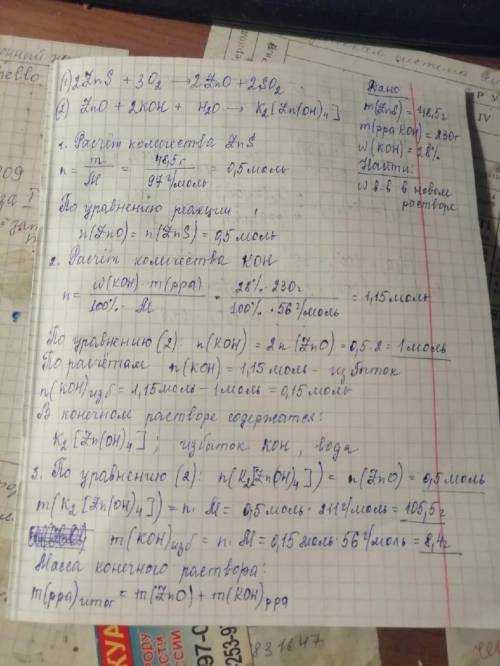 1) 2ZnS + 3O₂ → 2ZnO + 2SO₂
2) ZnO + 2KOH + H₂O → K₂[Zn(OH)₄]
Дано
m(ZnS) = 48,5г
m(рра KOH) = 230г
w(KOH) = 28%
Найти:
w в-в в новом
растворе
1. Расчёт количества ZnS
n = m/M = 48,5г/97г/моль = 0,5 моль
По уравнению реакции
n(ZnO) = n(ZnS) = 0,5 моль
2. Расчёт количества KOH
n = w(KOH) · m(рра)/100% · M = 28% · 230г/100% · 56г/моль = 1,15 моль
По уравнению (2): n(KOH) = 2n(ZnO) = 0,5·2 = 1 моль
По расчётам n(KOH) = 1,15 моль - избыток
n(KOH)изб = 1,15 моль - 1 моль = 0,15 моль
В конечном растворе содержатся:
K₂[Zn(OH)₄]; избыток KOH, вода
3. По уравнению (2): n(K₂[Zn(OH)₄]) = n(ZnO) = 0,5 моль
m(K₂[Zn(OH)₄]) = n·M = 0,5 моль · 211г/моль = 105,5г
m(KOH)изб = n·M = 0,15 моль · 56г/моль = 8,4г
Масса конечного раствора:
m(рра)итог = m(ZnO) + m(KOH)рра
209
P V
IV
КУА
РОДУ
ССИИ
97-0
253-9
831647